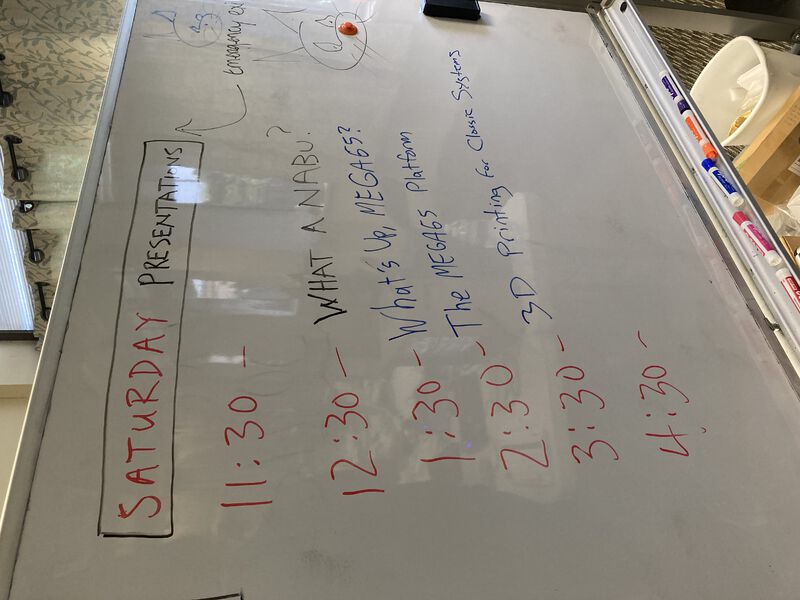 emergency exi
SATURDAY PRESENTATIONS
11:30 –
12:30 – WHAT A NABU?
1:30 – What's Up, MEGA65?
2:30 – The MEGA65 Platform
3:30 – 3D Printing for Classic Systems
4:30 –